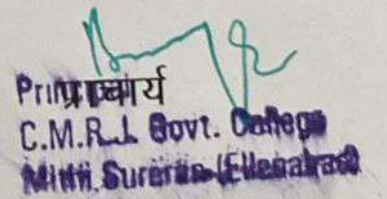 Principal प्राचार्य
C.M.R.J. Govt. College
Mithi Surera (Ellenabad)